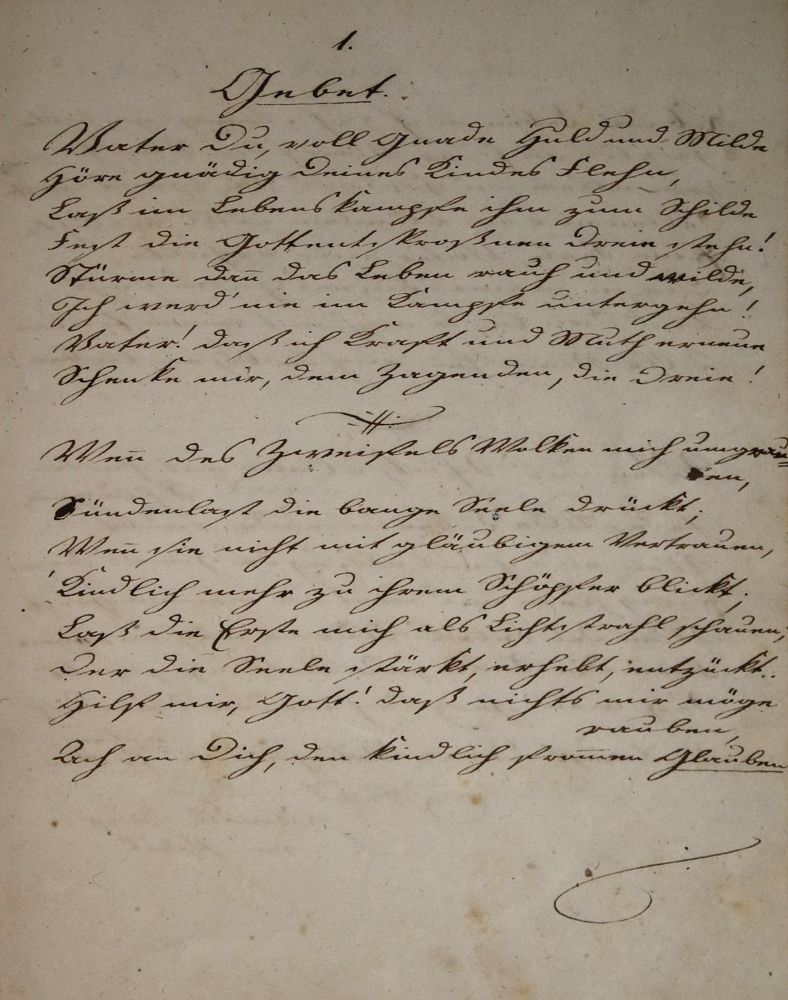 1.
Gebet.
Vater Du, voll Gnade Huld und Milde
Höre gnädig Deines Kindes Flehn,
Laß im Lebenskampfe ihm zum Schilde
Fest die Gottentsproßnen Dreie stehn!
Stürme dan̄ das Leben rauh und wilde,
Ich werd' nie im Kampfe untergehn!
Vater! daß ich Kraft und Muth erneue
Schenke mir, dem Zagenden, die Dreie!
Wen̄ des Zweifels Wolken mich umgrau=
en,
Sündenlast die bange Seele drückt;
Wen̄ sie nicht mit gläubigem Vertrauen,
Kindlich mehr zu ihrem Schöpfer blickt;
Laß die Erste mich als Lichtstrahl schauen,
Der die Seele stärkt, erhebt, entzückt.
Hilf mir, Gott! daß nichts mir möge
rauben,
Ach an Dich, den kindlich from̄en Glauben